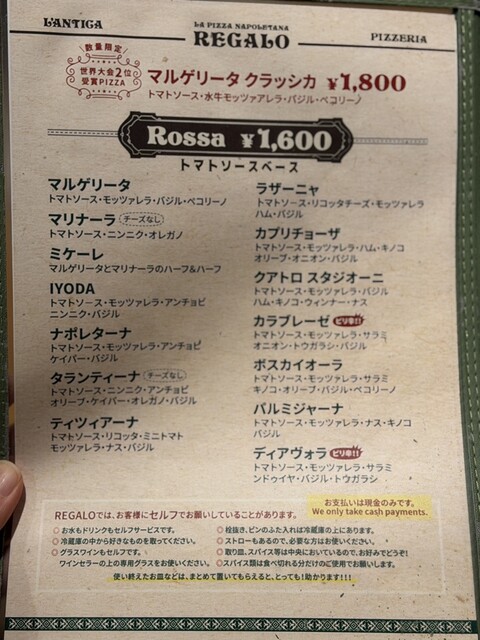 L'ANTICA
LA PIZZA NAPOLETANA
REGALO
PIZZERIA
数量限定
世界大会2位
受賞PIZZA
マルゲリータ クラッシカ ¥1,800
トマトソース・水牛モッツァアレラ・バジル・ペコリーノ
Rossa ¥1,600
トマトソースベース
マルゲリータ
トマトソース・モッツァレラ・バジル・ペコリーノ
マリナーラ チーズなし
トマトソース・ニンニク・オレガノ
ミケーレ
マルゲリータとマリナーラのハーフ&ハーフ
IYODA
トマトソース・モッツァレラ・アンチョビ
ニンニク・バジル
ナポレターナ
トマトソース・モッツァレラ・アンチョビ
ケイパー・バジル
タランティーナ チーズなし
トマトソース・ニンニク・アンチョビ
オリーブ・ケイパー・オレガノ・バジル
ティツィアーナ
トマトソース・リコッタ・ミニトマト
モッツァレラ・ナス・バジル
ラザーニャ
トマトソース・リコッタチーズ・モッツァレラ
ハム・バジル
カプリチョーザ
トマトソース・モッツァレラ・ハム・キノコ
オリーブ・オニオン・バジル
クアトロ スタジオーニ
トマトソース・モッツァレラ・バジル
ハム・キノコ・ウィンナー・ナス
カラブレーゼ ピリ辛!!
トマトソース・モッツァレラ・サラミ
オニオン・トウガラシ・バジル
ボスカイオーラ
トマトソース・モッツァレラ・サラミ
キノコ・オリーブ・バジル・ペコリーノ
パルミジャーナ
トマトソース・モッツァレラ・ナス・キノコ
バジル
ディアヴォラ ピリ辛!!
トマトソース・モッツァレラ・サラミ
ンドゥイヤ・バジル・トウガラシ
お支払いは現金のみです。
We only take cash payments.
REGALOでは、お客様にセルフでお願いしていることがあります。
◎お水もドリンクもセルフサービスです。
◎冷蔵庫の中から好きなものを取ってください。
◎グラスワインもセルフです。
ワインセラーの上の専用グラスをお使いください。
◎栓抜き、ビンのふた入れは冷蔵庫の上にあります。
◎ストローもあるので、必要な方はお使いください。
◎取り皿、スパイス等は中央においているので、お好みでどうぞ!
◎スパイス類は食べ切れる分だけのご使用でお願いします。
使い終えたお皿などは、まとめて置いてもらえると、とっても!助かります!!!